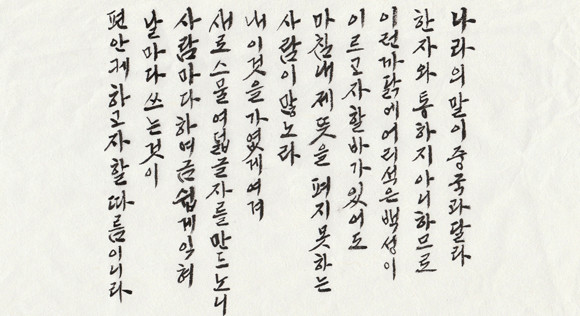 나라의 말이 중국과 달라
한자와 통하지 아니하므로
이런 까닭에 어리석은 백성이
이르고자 할 바가 있어도
마침내 제 뜻을 펴지 못하는
사람이 많노라
내 이것을 가엾게 여겨
새로 스물여덟 글자를 만드노니
사람마다 하여금 쉽게 익혀
날마다 쓰는 것이
편안케 하고자 할 따름이니라